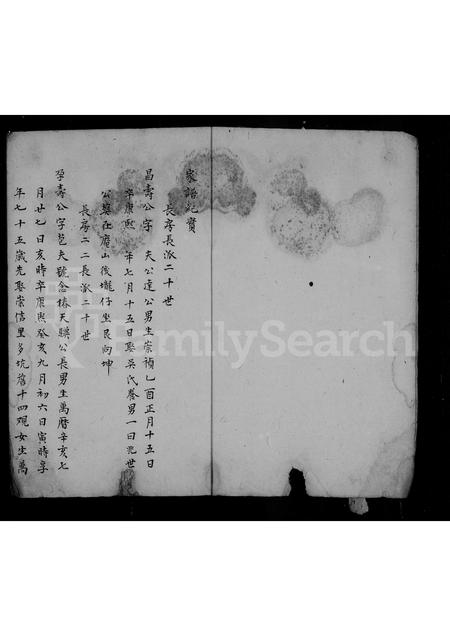 家詒紀實
長房長派二十世
昌壽公字 夫公達公男生崇禎乙酉正月十五日
卒康熙 年七月十五日娶吳氏養男一曰 世
公葬在 山後壠仔坐艮向坤
長房二二長派二十世
孕壽公字 夫號念椿天 公長男生萬曆辛亥七
月廿七日亥時卒康熙癸亥九月初六日寅時享
年七十五歲先娶崇信里多坑詹十四觀女生萬
FamilySearch